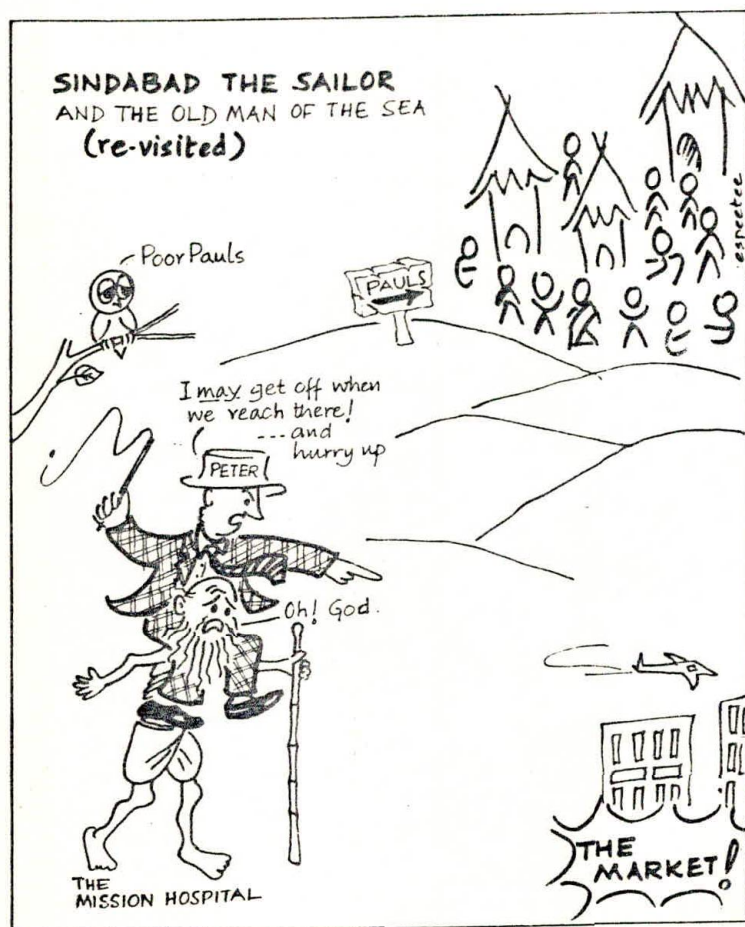 SINDABAD THE SAILOR
AND THE OLD MAN OF THE SEA
(re-visited)
Poor Pauls
PAULS
espeetee
I may get off when
we reach there!
---- and
hurry up
PETER
Oh! God.
THE
MISSION HOSPITAL
THE
MARKET!